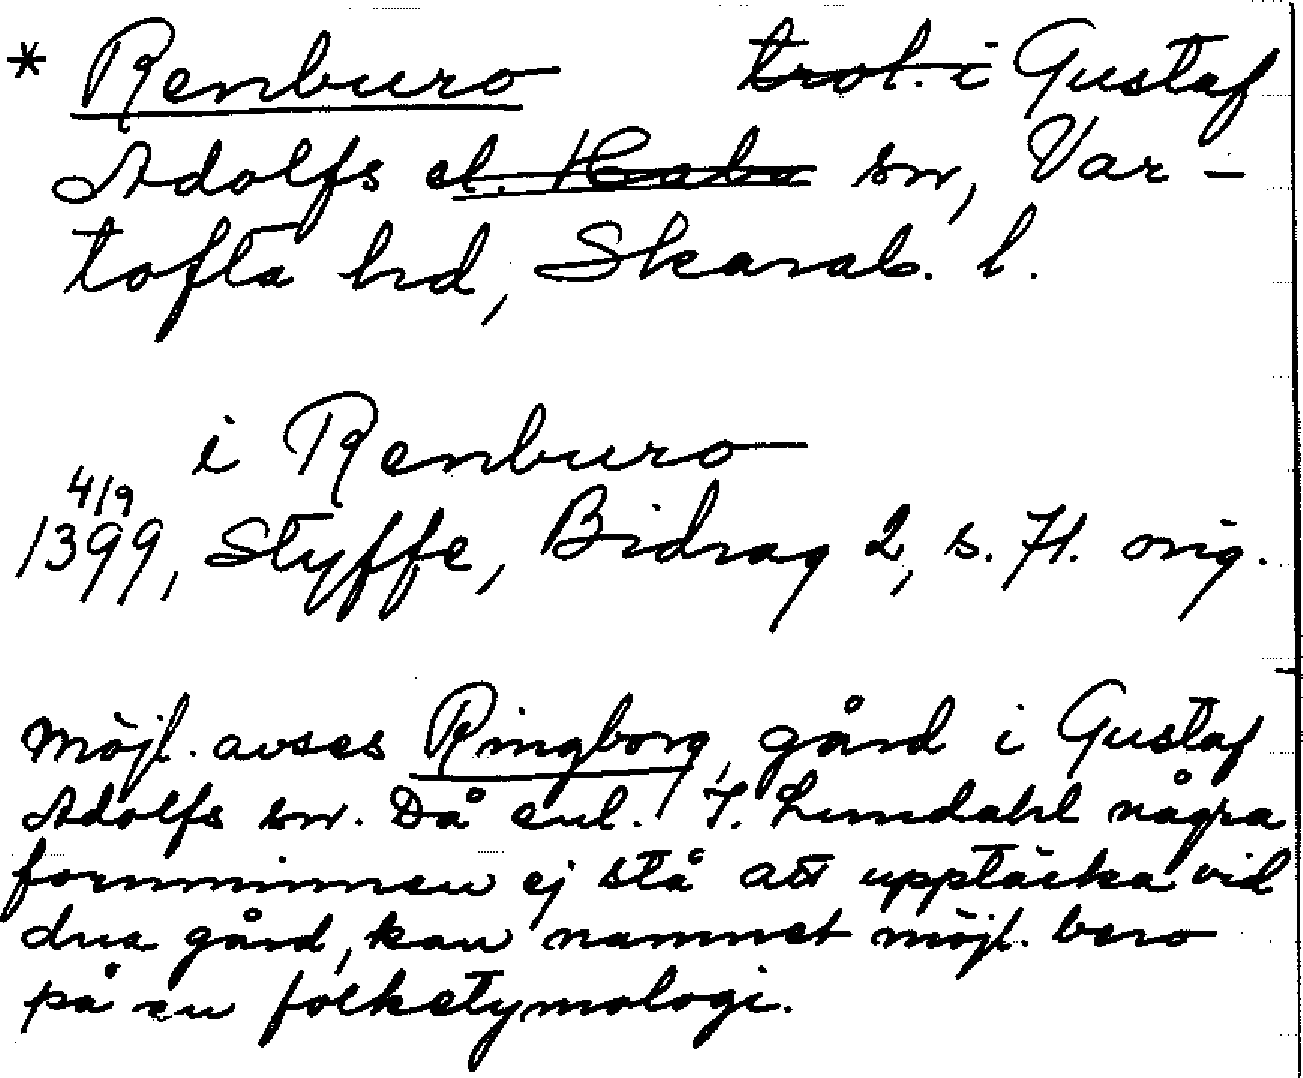 * Renburo trol. i Gustaf
Adolfs el. Habo sn, Var-
tofta hd, Skarab. l.
i Renburo
4/9
1399, Styffe, Bidrag 2, s. 71. orig.
Möjl. avses Ringborg, gård i Gustaf
Adolfs sn. Då enl. F. Lundahl några
fornminnen ej stå att upptäcka vid
dna gård, kan namnet möjl. bero
på en folketymologi.